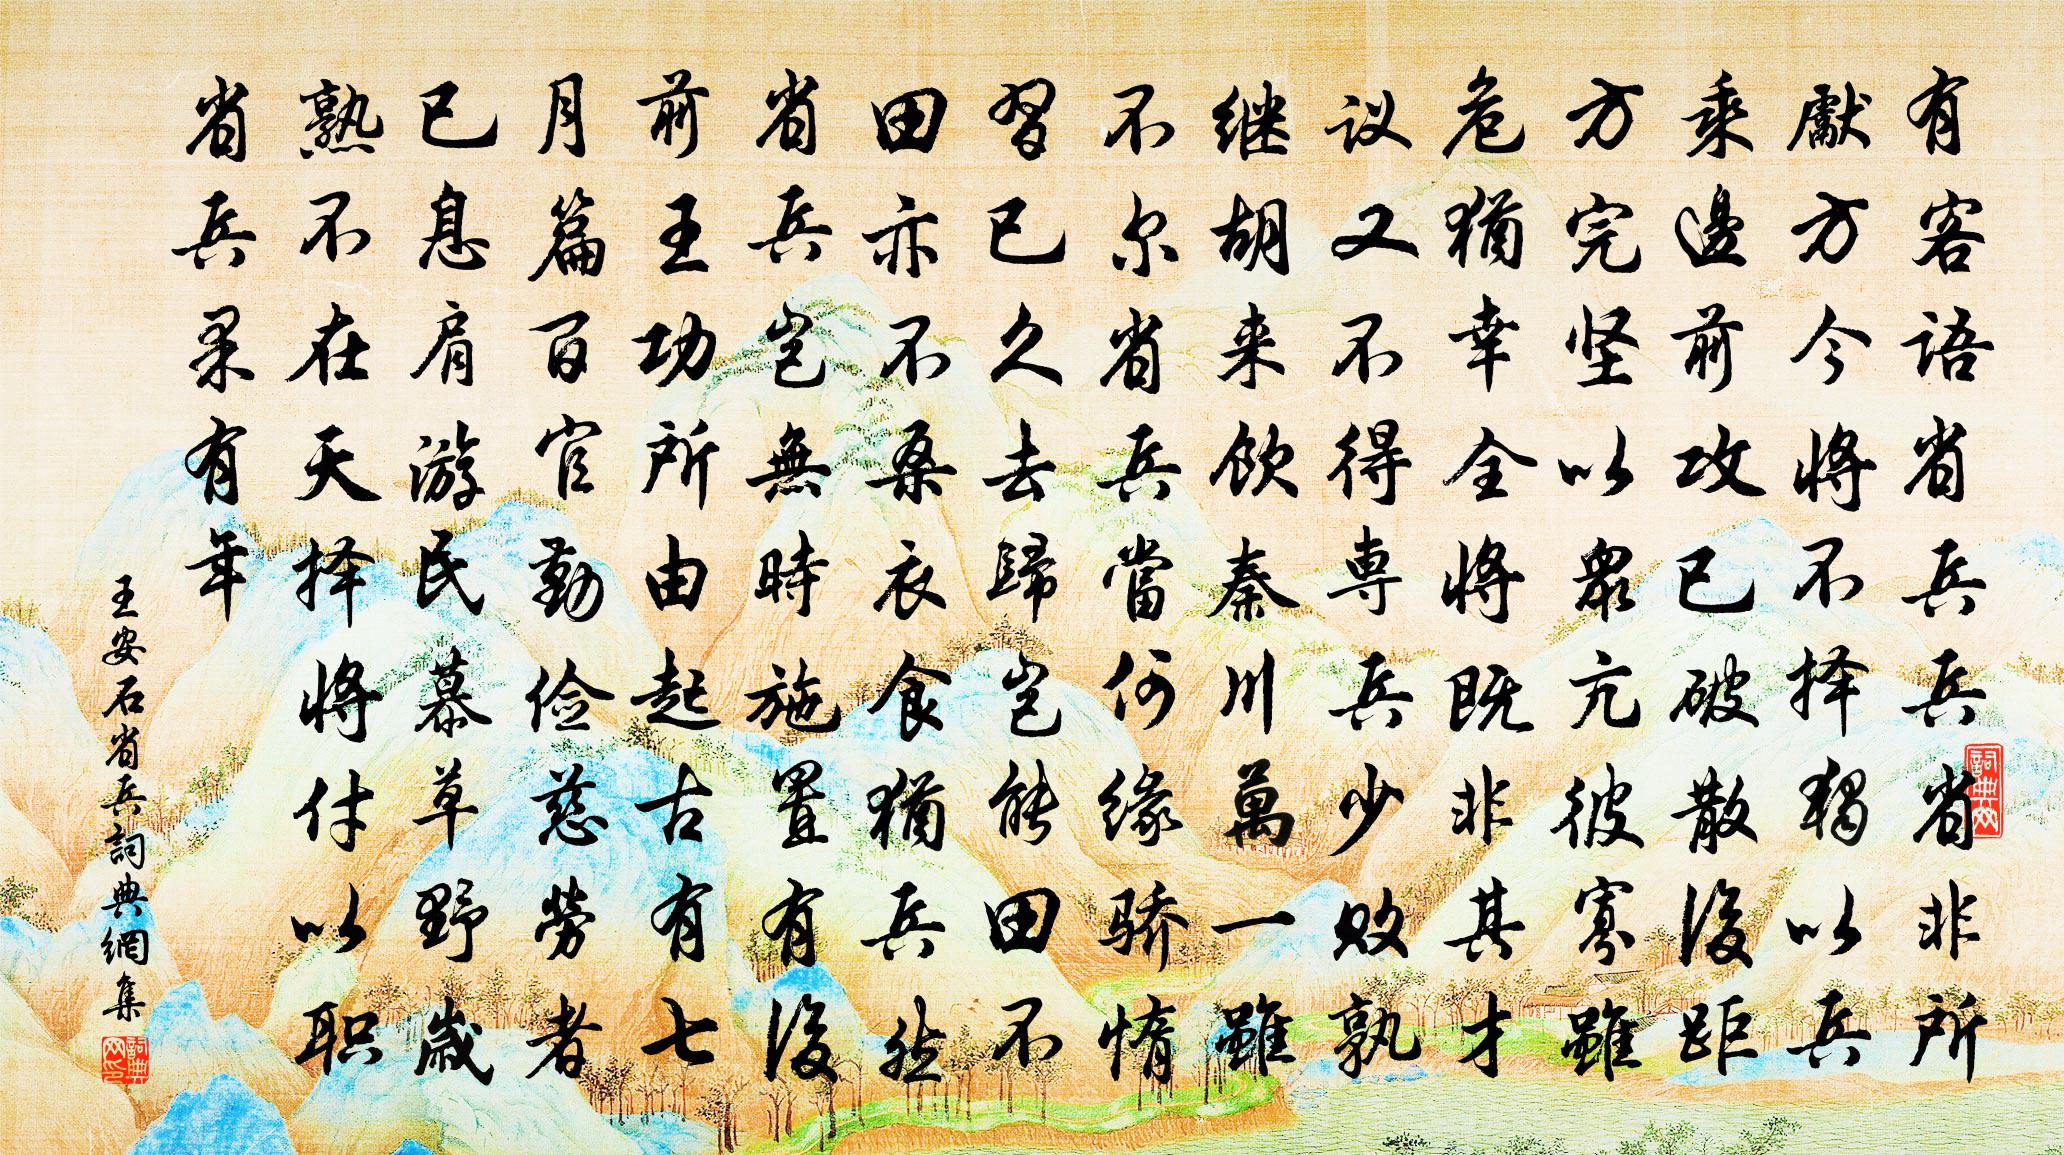 有客语省兵兵省非所
獻方今将不择獨以兵
乘邊前攻已破散後距
方完坚以眾亢彼寡雖
危猶幸全将既非其才
议又不得專兵少败孰
继胡来飲秦川萬一雖
不尔省兵當何缘骄惰
習已久去歸豈能田不
田亦不桑衣食猶兵然
省兵豈無時施置有後
前王功所由起古有七
月篇百官勤俭慈勞者
已息肩游民慕草野歲
熟不在天择将付以职
省兵果有年
王安石省兵詞典網集
詞典网
詞典网印